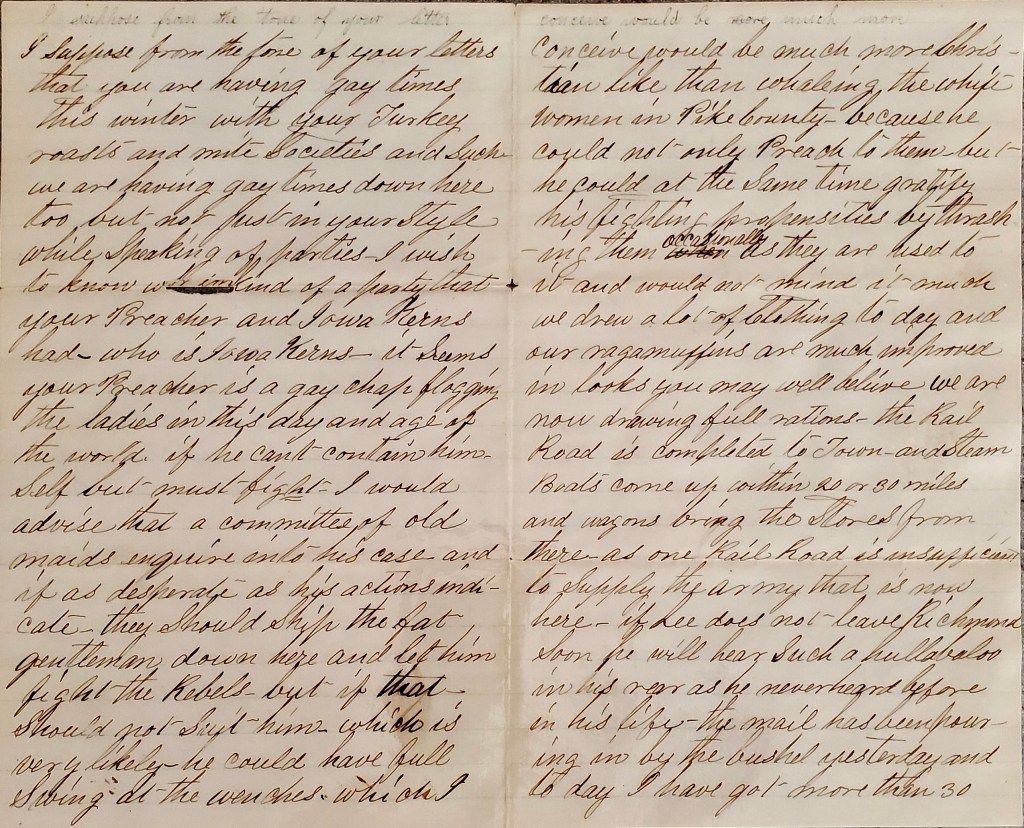 I suppose from the tone of your letter
I suppose from the tone of your letters
that you are having gay times
this winter with your Turkey
roasts and mite Societies and Such
we are having gay times down here
too but not just in your Style
while Speaking of parties - I wish
to know kind of a party that
your Preacher and Iowa Kerns
had - who is Iowa Kerns - it Seems
your Preacher is a gay chap flogging
the ladies in this day and age of
the world. if he cant contain him-
Self but must fight - I would
advise that a committee of old
maids enquire into his case - and
if as desperate as his actions indi-
cate - they Should Ship the fat
gentleman down here and let him
fight the Rebels - but if that
Should not Suit him - which is
very likely - he could have full
Swing at the wenches - which I
conceive would be more much more
conceive would be much more Chris-
tian like than whaleing the white
women in Pike County - because he
could not only Preach to them - but
he could at the Same time gratify
his fighting propensities by thrash
-ing them occasionally as they are used to
it and would not mind it much
we drew a lot of Clothing to day and
our ragamuffins are much improved
in looks you may well believe we are
now drawing full rations - the Rail
Road is completed to Town - and Steam
Boats come up within 20 or 30 miles
and wagons bring the Stores from
there - as one Rail Road is insufficient
to Supply the army that is now
here - if Lee does not leave Richmond
Soon he will hear Such a hullabaloo
in his rear as he never heard before
in his life - the mail has been pour-
ing in by the bushel yesterday and
to day I have got more than 30